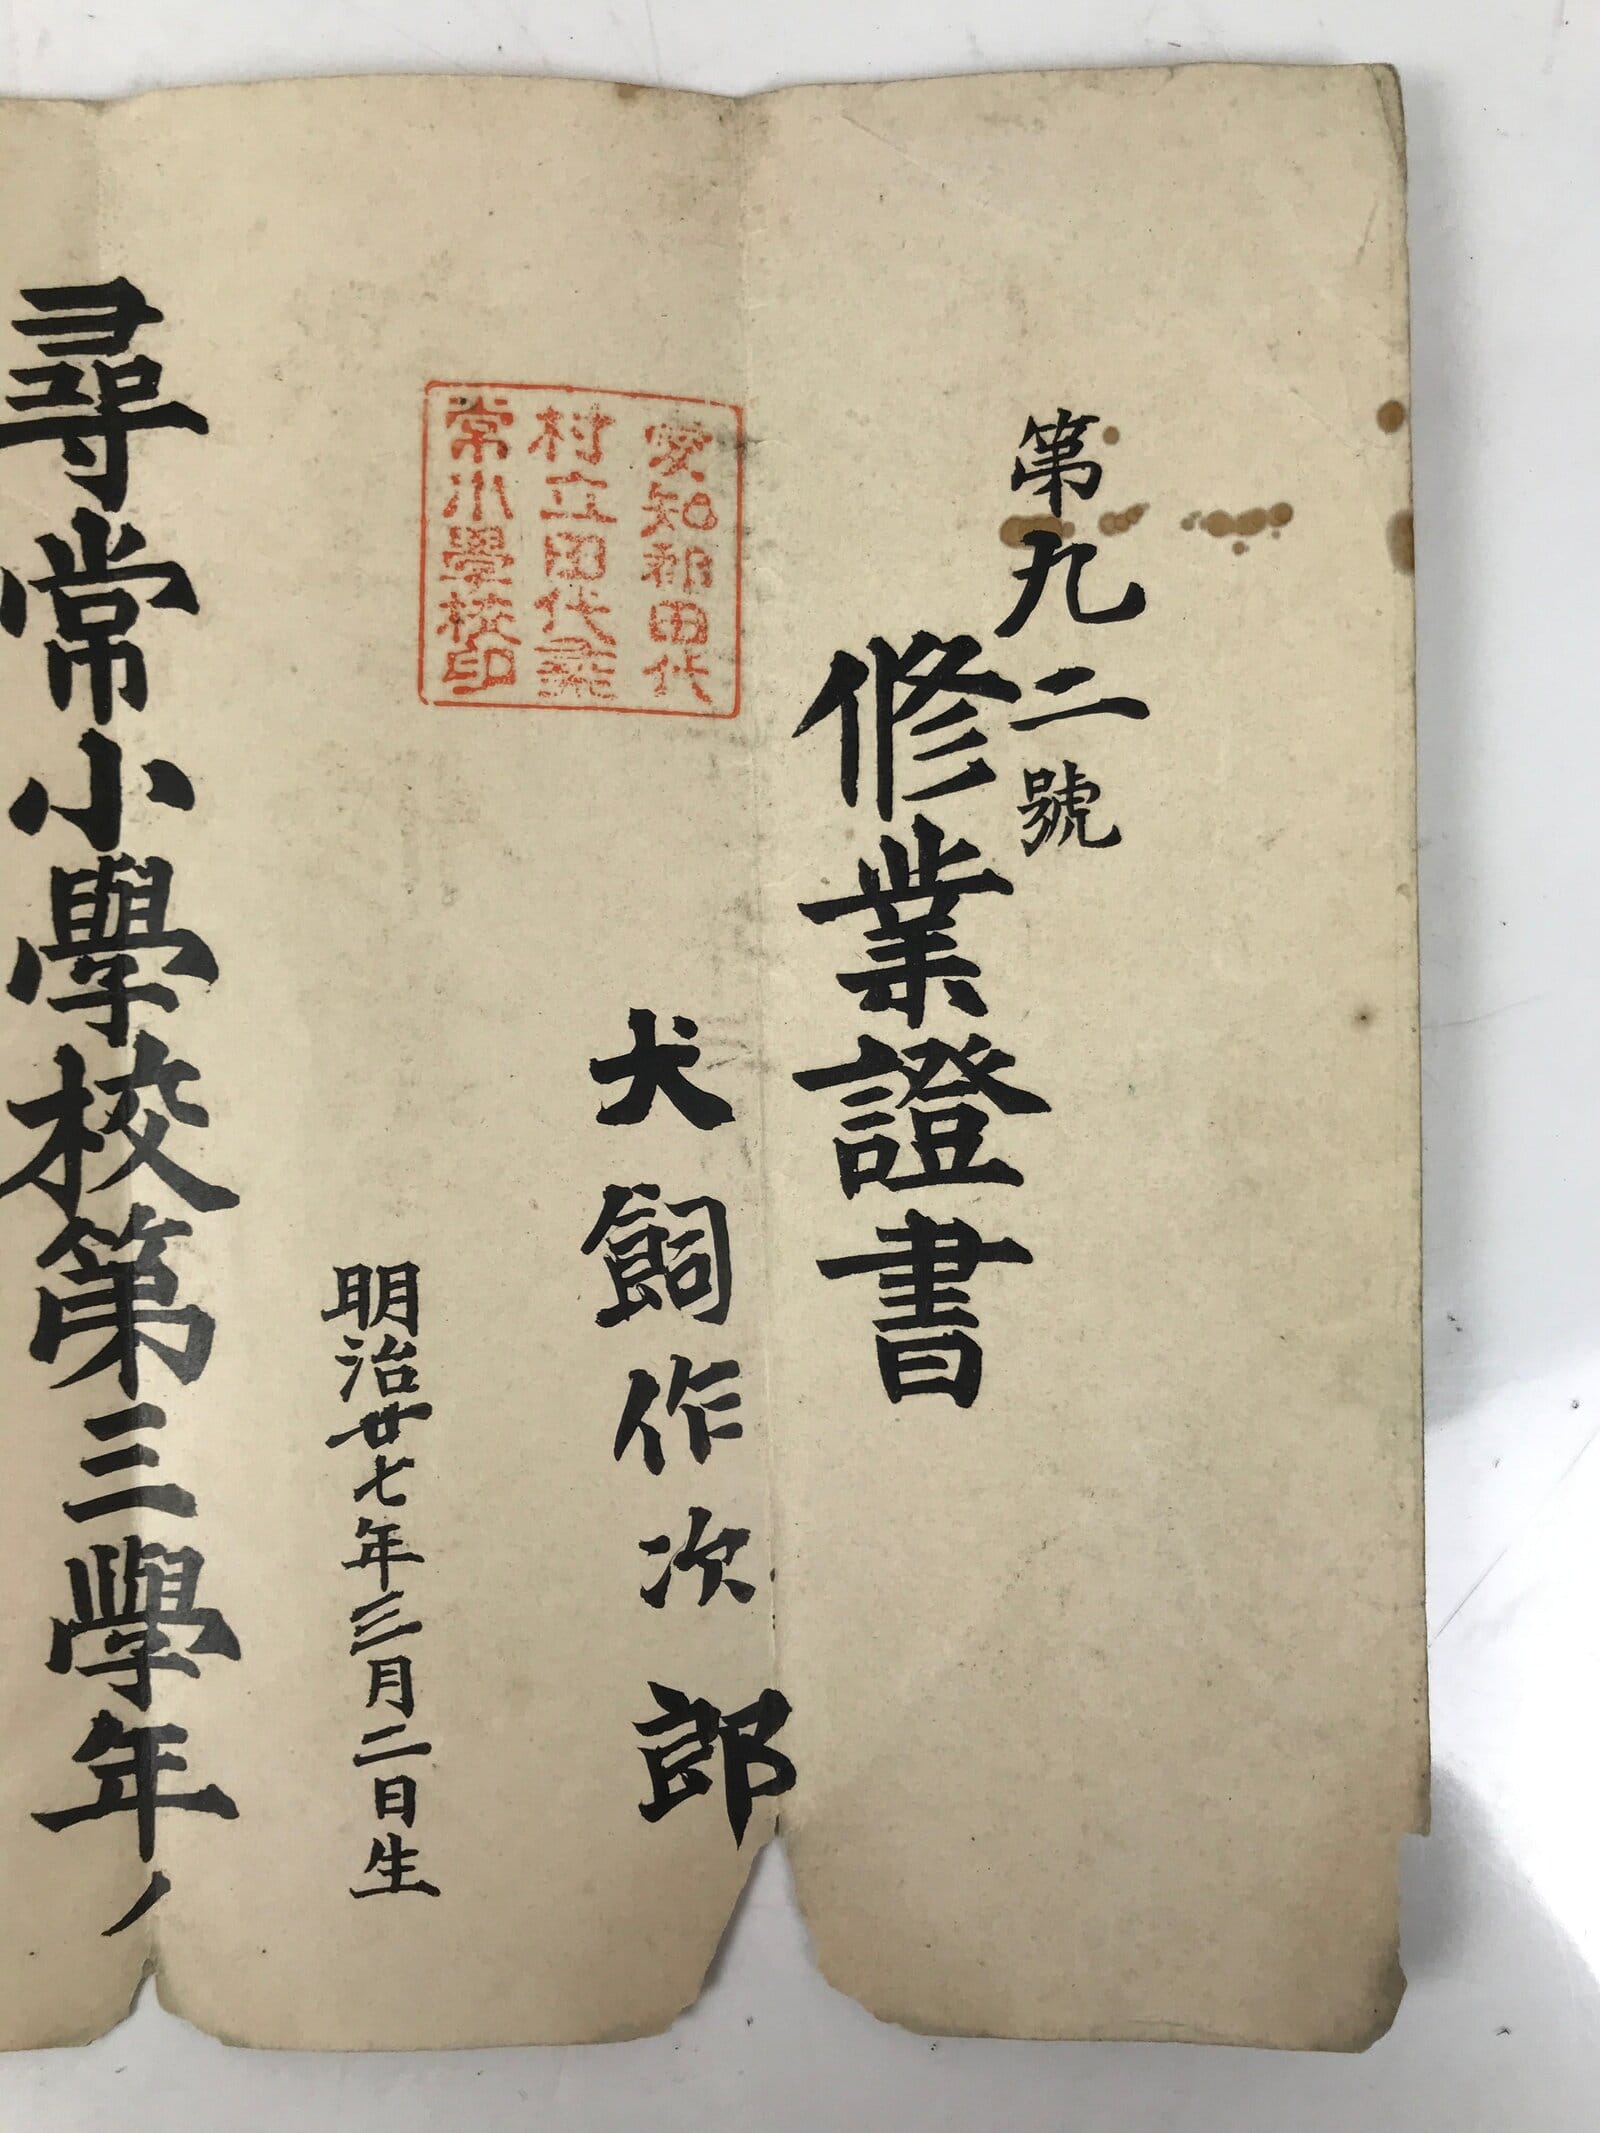 第九二號
修業證書
犬飼作次郎
愛知郡田代
村立田代尋
常小學校印
明治廿七年三月二日生
尋常小學校第三學年ノ